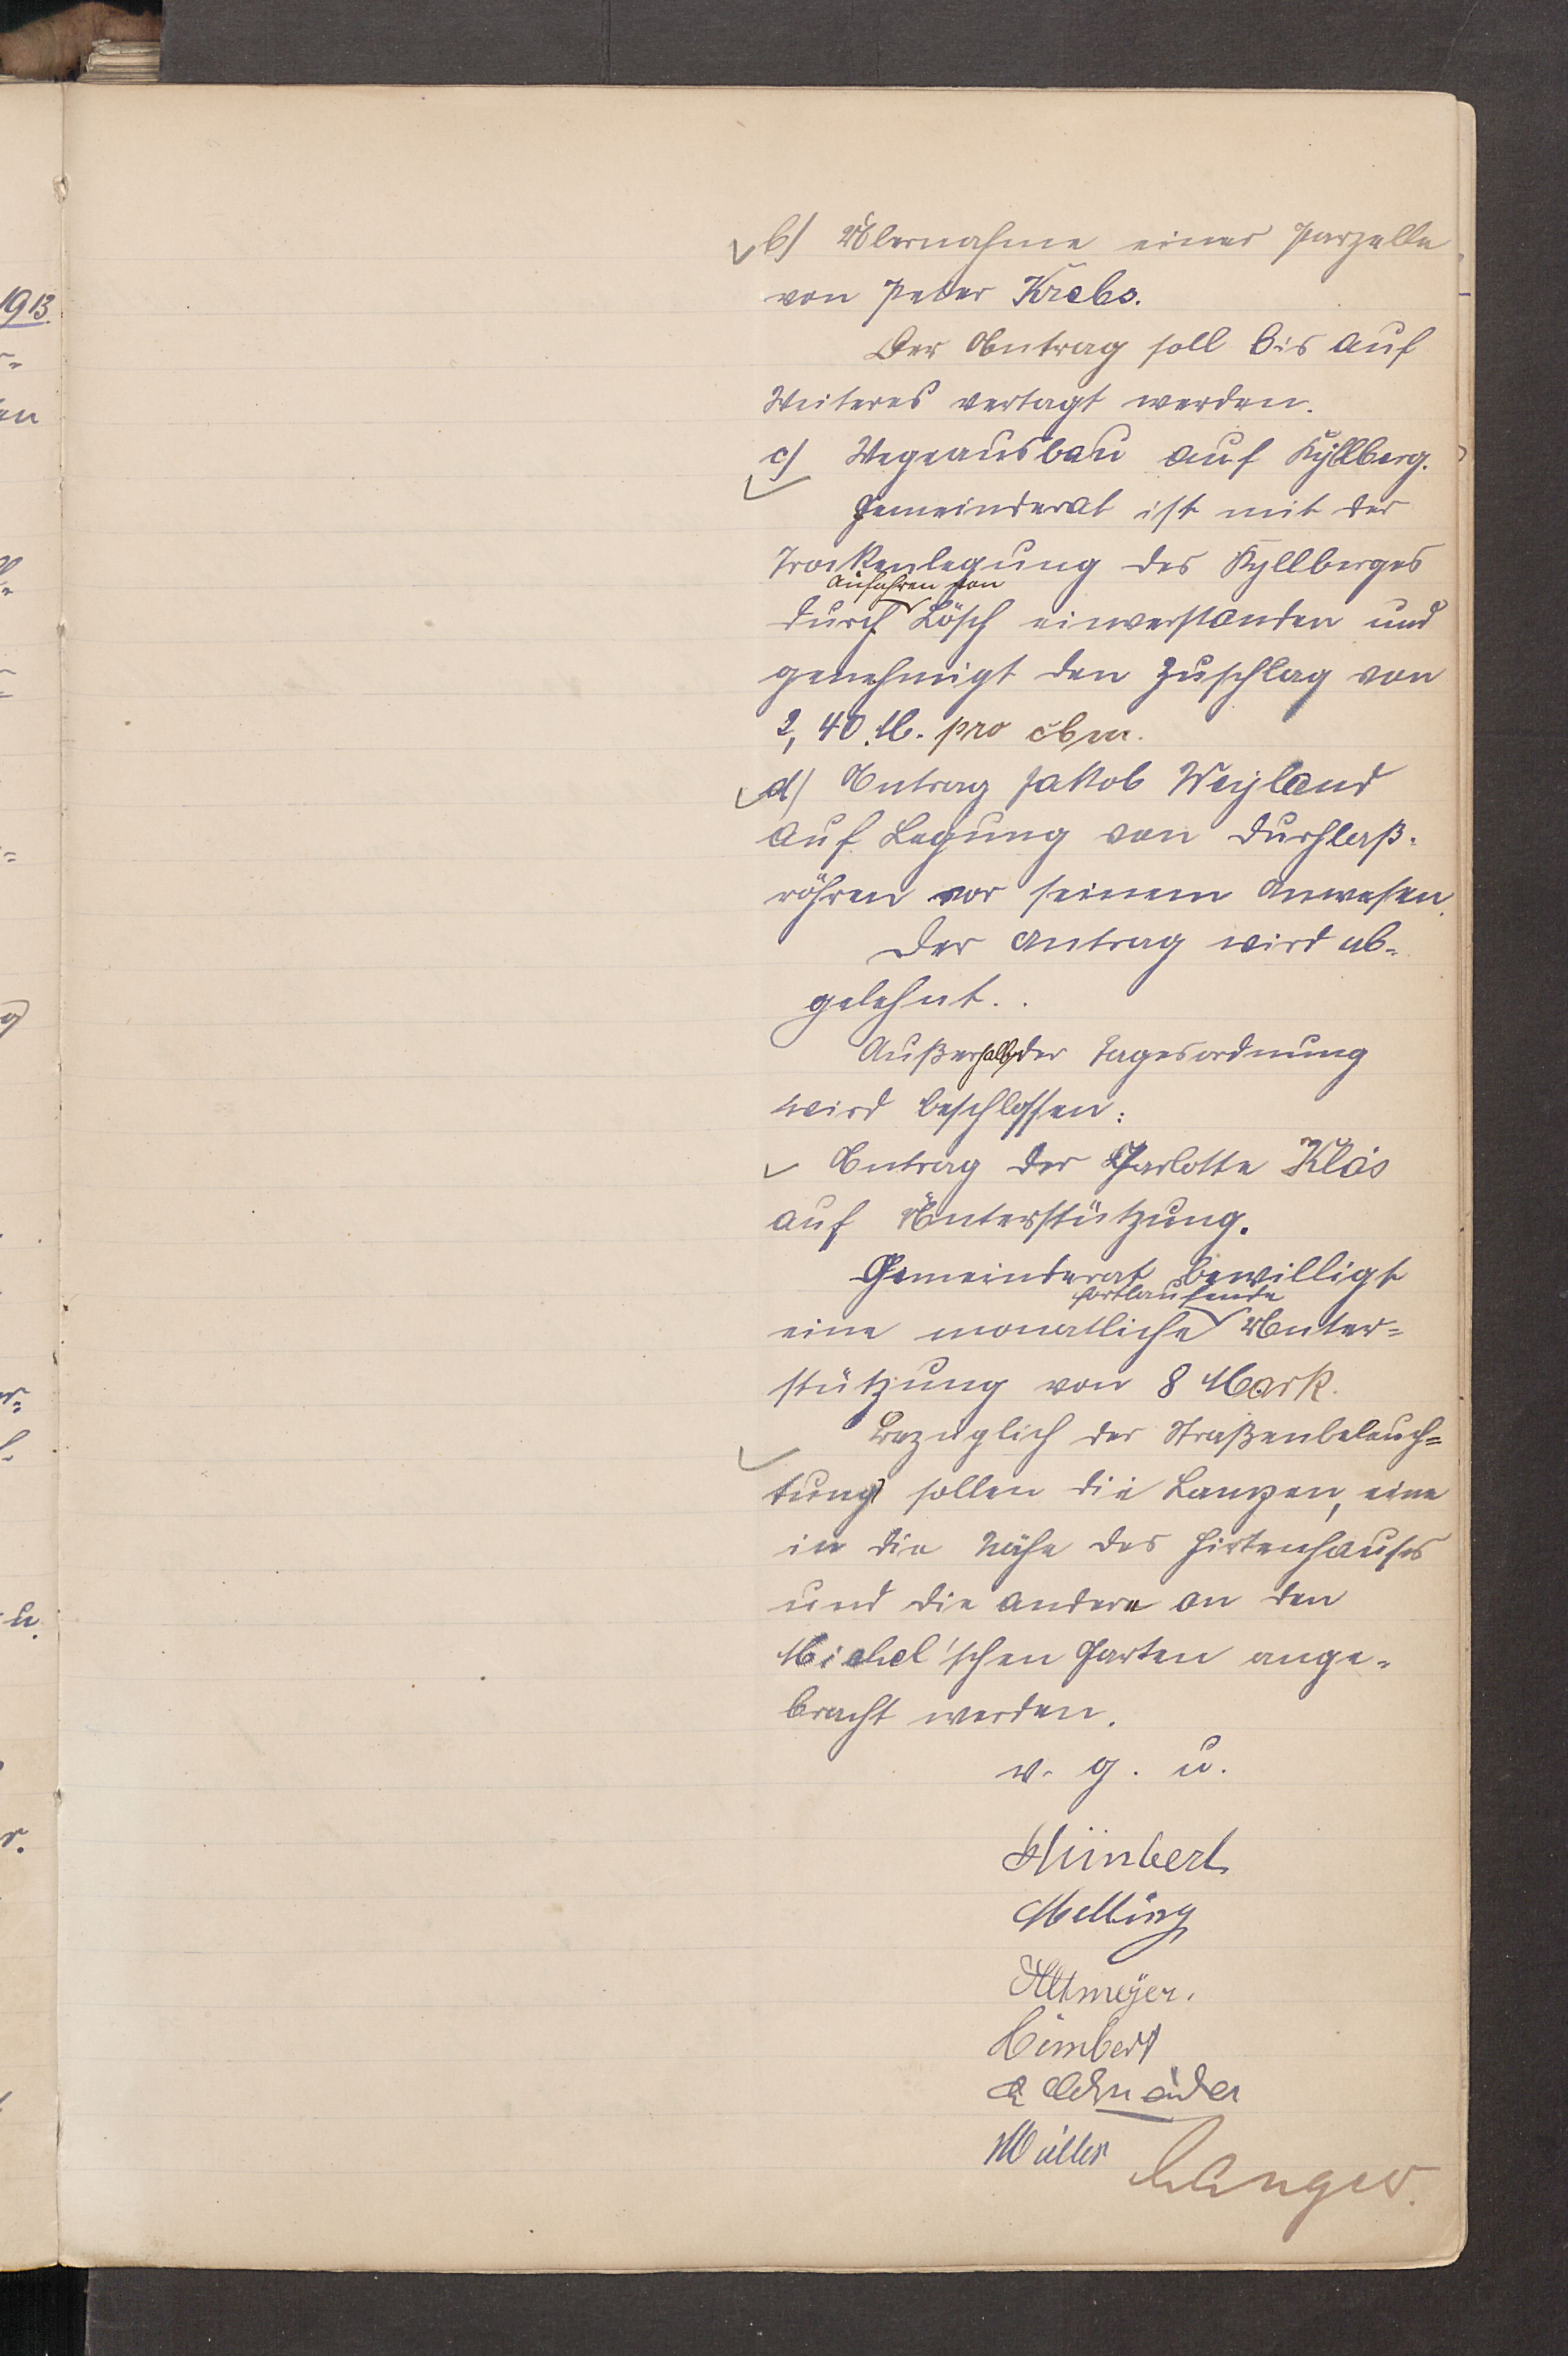 1913.
b) Übernahme einer Parzelle
von Peter Krebs.
Der Antrag soll bis auf
Weiteres vertagt werden.
c) Wegeausbau auf Kyllberg.
Gemeinderat ist mit der
Trockenlegung des Kyllberges
Anfahren von
durch Lösch einverstanden und
genehmigt den Zuschlag von
2,40 M. pro cbm.
d) Antrag Jakob Weyland
auf Legung von Durchlaß-
röhren vor seinem Anwesen.
Der Antrag wird ab-
gelehnt.
Außerhalb der Tagesordnung
wird beschlossen:
Antrag der Charlotte Kläs
auf Unterstützung.
Gemeinderat bewilligt
fortlaufende
eine monatliche Unter=
stützung von 8 Mark.
Bezüglich der Straßenbeleuch=
tung sollen die Lampen, eine
in die Nähe des Hirtenhauses
und die andere an den
Michel'schen Garten ange-
bracht werden.
v. g. u.
Melling
Altmeyer.
Himbert
Schneider
Müller